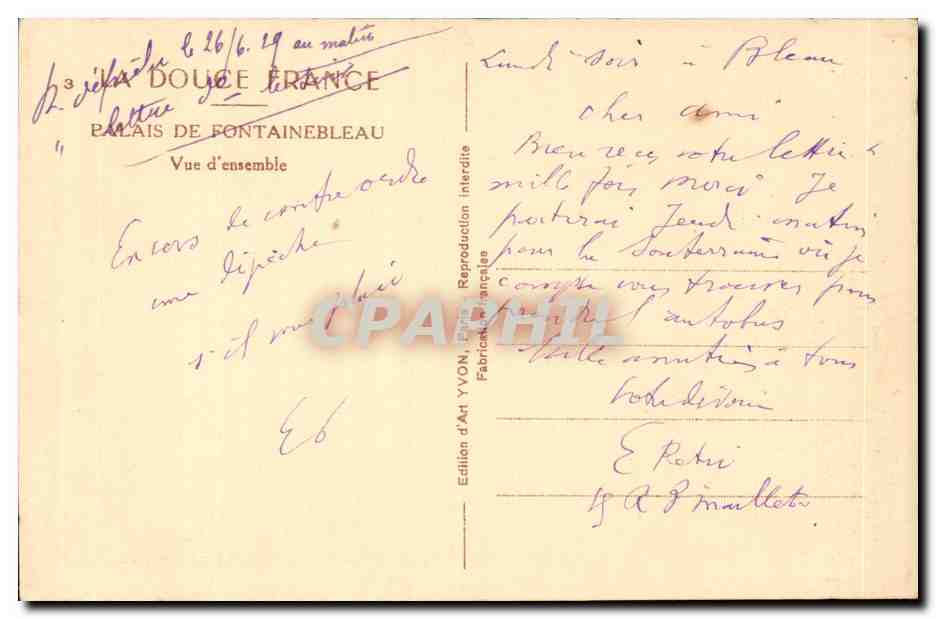 dépêche le 26/6.29 au matin
" lettre le soir
3 LA DOUCE FRANCE
PALAIS DE FONTAINEBLEAU
Vue d'ensemble
En cas de contre ordre
une dépêche
s'il vous plaît
Edition d'Art YVON, Paris Reproduction interdite
Fabrication française
Lundi soir à Bleau
cher ami
Bien reçu votre lettre &
mille fois merci Je
partirai Jeudi matin
pour la où je
compte vous trouver pour
prendre l'autobus
Mille amitiés à tous
Votre dévoué
E
CPAPHIL